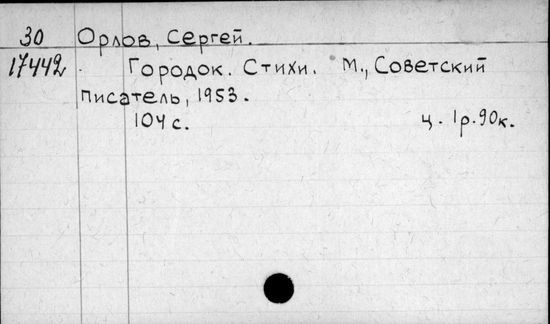 30 Орлов, Сергей.
17442 Городок. Стихи. М., Советский
писатель, 1953.
104 с. ц. 1р.90к.